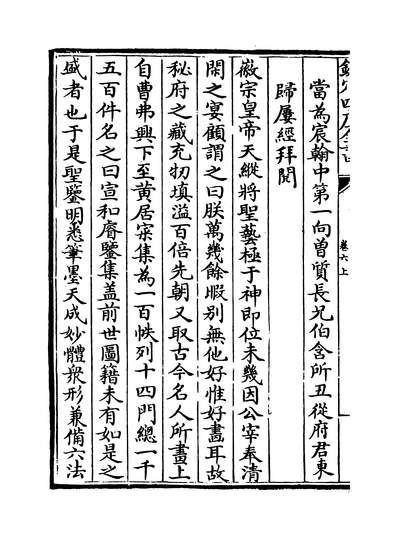 欽定四庫全書
卷六上
當為宸翰中第一向曽質長兄伯含所丑從府君東
歸屢經拜閲
徽宗皇帝天縱將聖藝極于神即位未幾因公宰奉清
閑之宴顧謂之曰朕萬幾餘暇别無他好惟好畫耳故
秘府之藏充牣填溢百倍先朝又取古今名人所畫上
自曹弗興下至黄居寀集為一百帙列十四門總一千
五百件名之曰宣和睿鑒集盖前世圖籍未有如是之
盛者也于是聖鑒明悉筆墨天成妙體衆形兼備六法